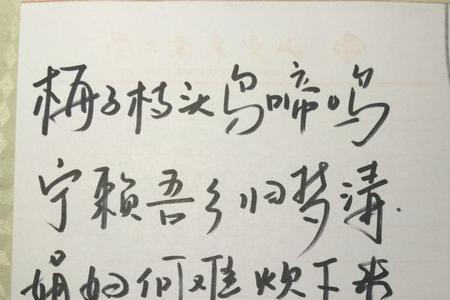 梅子枝头鸟啼鸣
宁赖吾乡归梦
娟妇何难炊下米